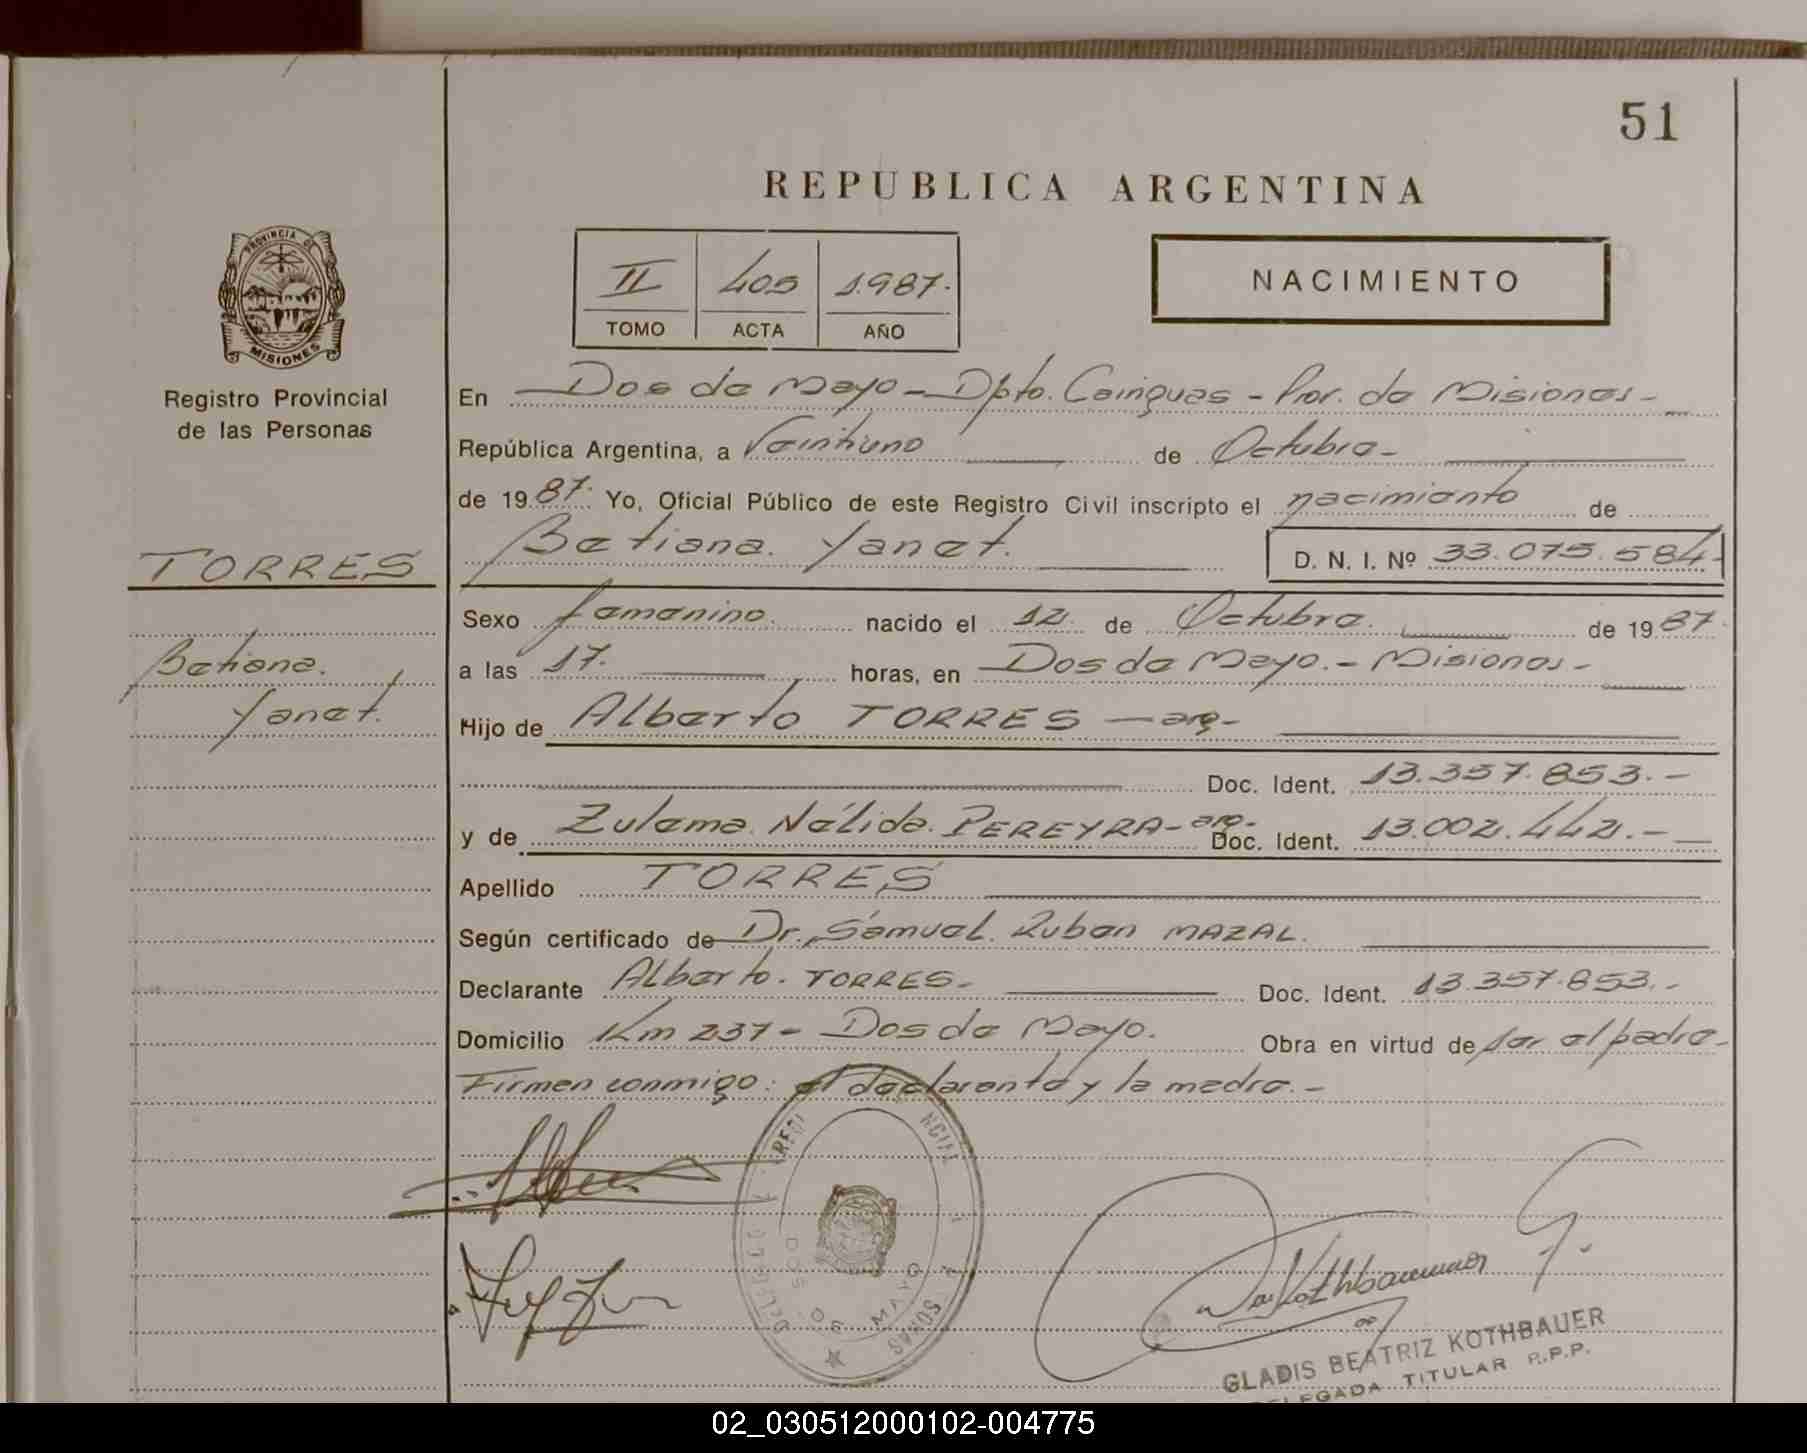 51
REPUBLICA ARGENTINA
PROVINCIA DE
MISIONES
Registro Provincial
de las Personas
II 405 1987.
TOMO ACTA AÑO
NACIMIENTO
En Dos de Mayo - Dpto. Cainguas - Prov. de Misiones -
República Argentina, a Veintiuno de Octubre -
de 1987. Yo, Oficial Público de este Registro Civil inscripto el nacimiento de
Betiana. Yanet. D. N. I. Nº 33.075.584.
TORRES
Betiana.
Yanet.
Sexo femenino. nacido el 12 de Octubre. de 1987.
a las 17. horas, en Dos de Mayo. - Misiones -
Hijo de Alberto TORRES - arg -
Doc. Ident. 13.357.853. -
y de Zulema. Nélida. PEREYRA - arg - Doc. Ident. 13.002.442. -
Apellido TORRES
Según certificado de Dr. Samuel. Ruben MAZAL.
Declarante Alberto. TORRES - Doc. Ident. 13.357.853. -
Domicilio Km 237 - Dos de Mayo. Obra en virtud de ser el padre -
Firman conmigo: el declarante y la madre. -
GLADIS BEATRIZ KOTHBAUER
DELEGADA TITULAR R.P.P.
02_030512000102-004775